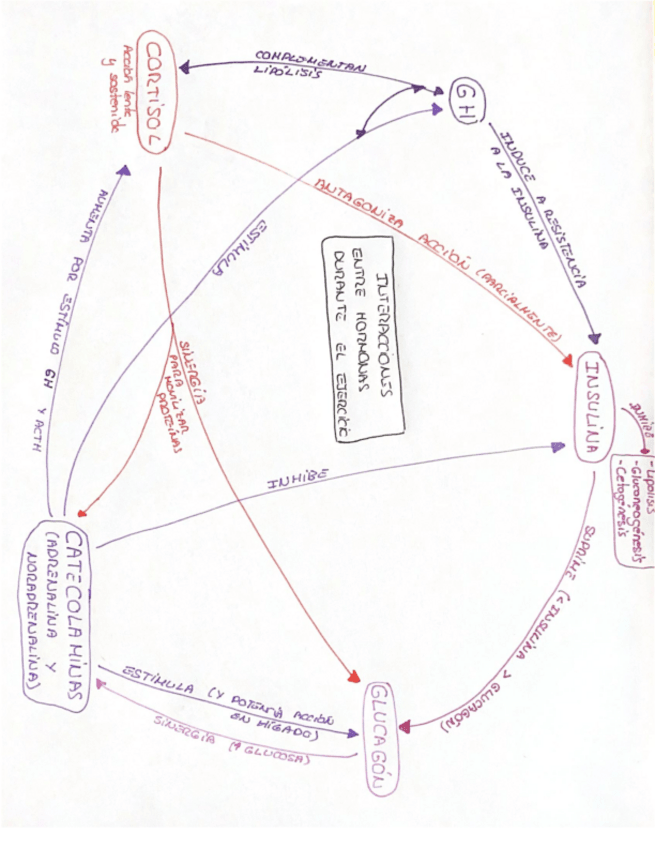 INHIBE
- Lipolisis
- Gluconeogénesis
- Cetogénesis
INSULINA
INDUCE A RESISTENCIA
A LA INSULINA
SUPRIME (< INSULINA > GLUCAGÓN)
GH
ANTAGONIZA ACCIÓN (PARCIALMENTE)
INTERACCIONES
ENTRE HORMONAS
DURANTE EL EJERCICIO
INHIBE
GLUCAGÓN
COMPLEMENTAN
LIPÓLISIS
ESTÍMULA
SINERGIA
PARA
MOVILIZAR
PROTEINAS
ESTÍMULA (Y POTENCIA ACCIÓN
EN HÍGADO)
SINERGIA (↑ GLUCOSA)
CORTISOL
Acción lenta
y sostenida
AUMENTA POR ESTÍMULO GH Y ACTH
CATECOLAMINAS
(ADRENALINA Y
NORADRENALINAS)